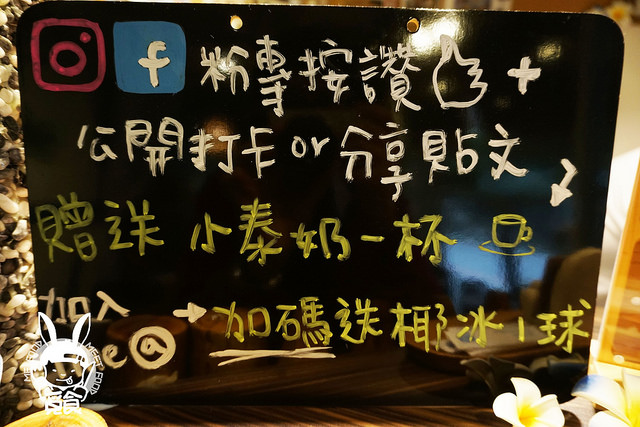 f 粉專按讚 +
公開打卡 or 分享貼文
贈送 小泰奶一杯
加入
e@ → 加碼送椰冰1球